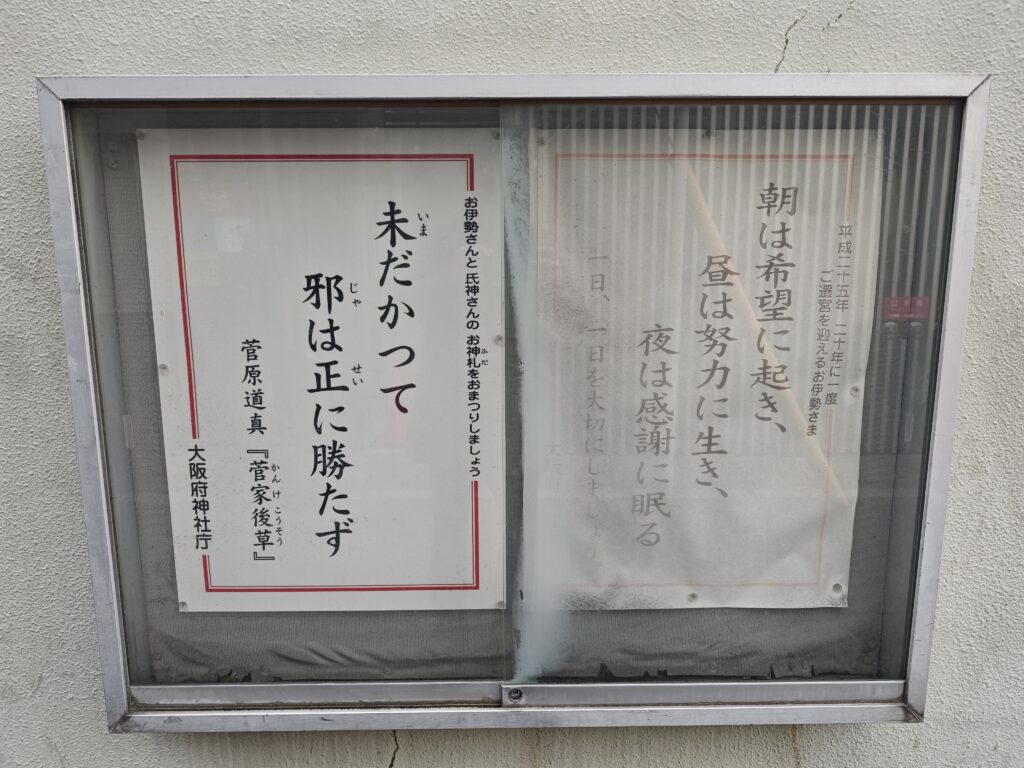 平成二十五年 二十年に一度
ご遷宮を迎えるお伊勢さま
朝は希望に起き、
昼は努力に生き、
夜は感謝に眠る
一日、一日を大切にしましょう
お伊勢さんと氏神さんのお神札をおまつりしましょう
ふだ
未だかつて
いま
邪は正に勝たず
じゃ せい
菅原道真『菅家後草』
かんけこうそう
大阪府神社庁